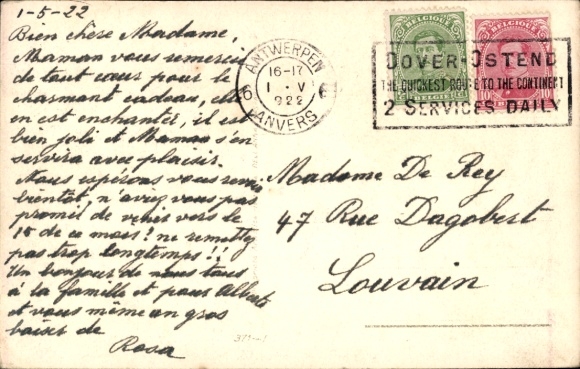 1-5-22
Bien chère Madame,
Maman vous remercie
de tout cœur pour le
charmant cadeau, elle
en est enchanter, il est
bien joli et Maman s'en
servira avec plaisir.
Nous espérons vous revoir
bientôt, n'avez vous pas
promit de venir vers le
15 de ce mois? ne remettez
pas trop longtemps!!
Un bonjour de nous tous
à la famille et pour Albert
et vous même un gros
baiser de
Rosa
ANTWERPEN
16-17
1 · V
1922
ANVERS
6 6
BELGIQUE
BELGIQUE
DOVER-OSTEND
THE QUICKEST ROUTE TO THE CONTINENT
2 SERVICES DAILY
Madame De Rey
47 Rue Dagobert
Louvain
371-1